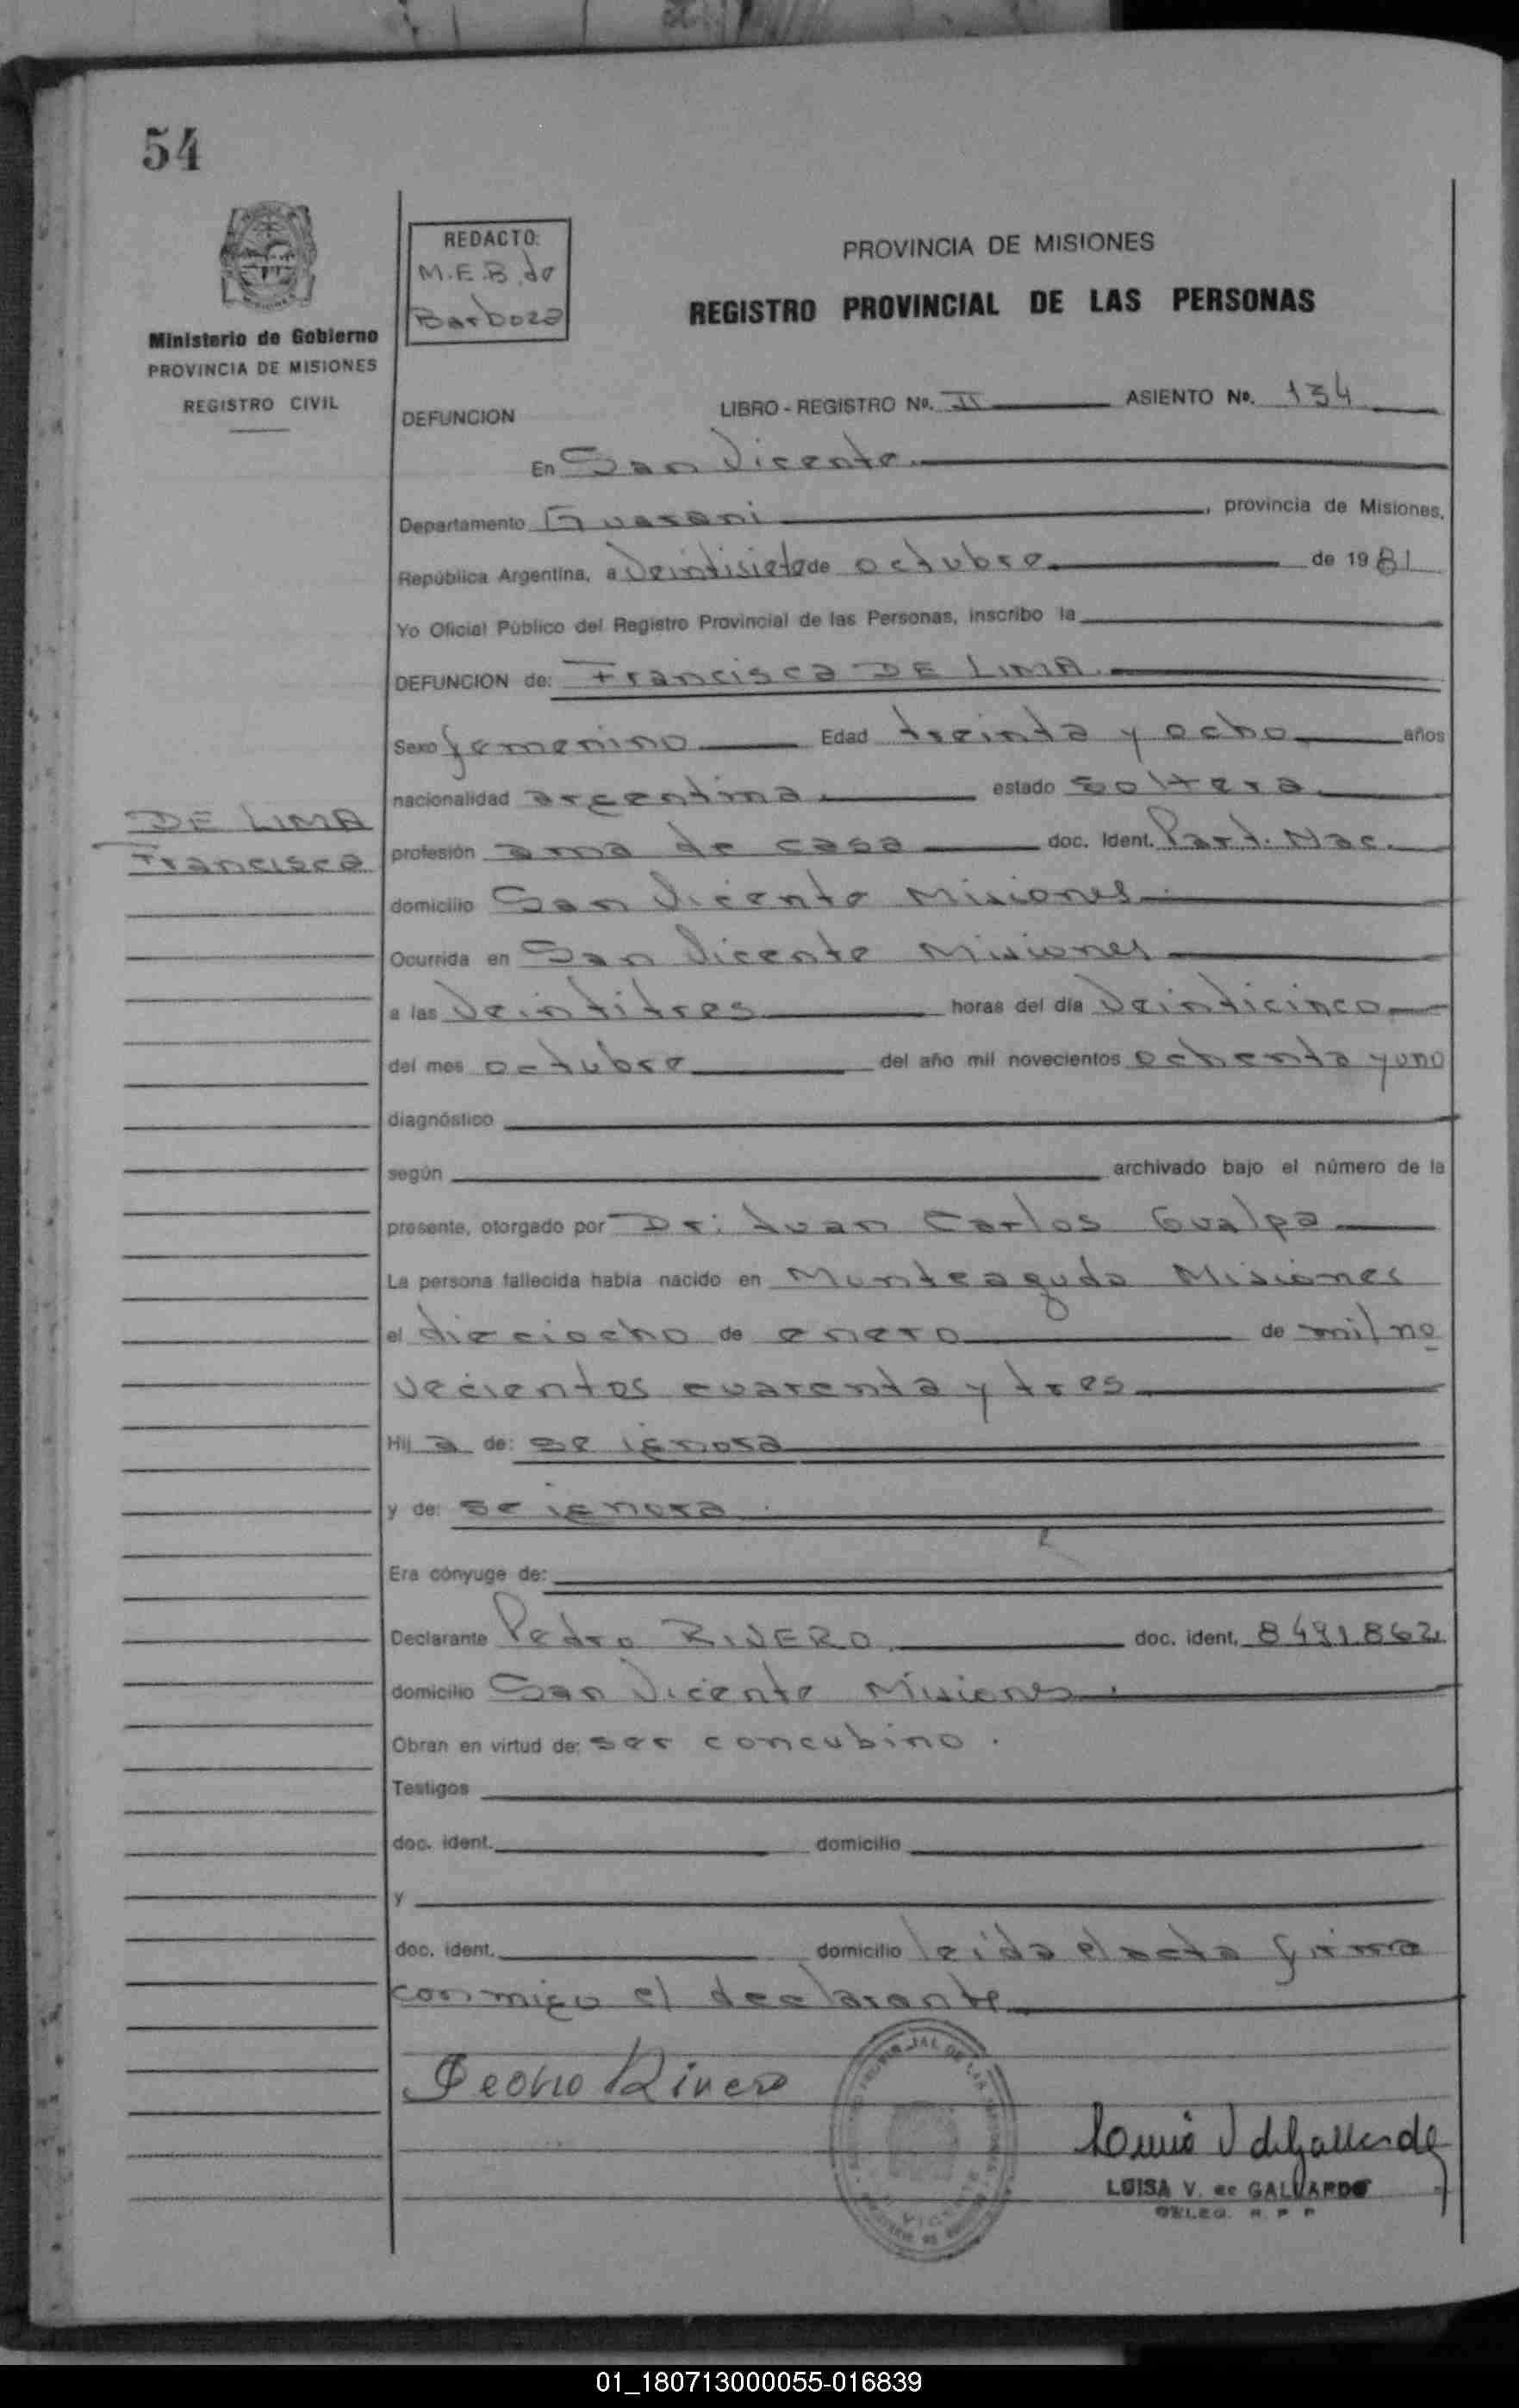 54
Ministerio de Gobierno
PROVINCIA DE MISIONES
REGISTRO CIVIL
REDACTO:
M.E.B. de
Barboza
PROVINCIA DE MISIONES
REGISTRO PROVINCIAL DE LAS PERSONAS
DEFUNCION LIBRO - REGISTRO Nº. II ASIENTO Nº. 134
En San Vicente
Departamento Guarani, provincia de Misiones,
República Argentina, a veintisiete de octubre de 1981
Yo Oficial Público del Registro Provincial de las Personas, inscribo la
DEFUNCION de: Francisca DE LIMA
Sexo femenino Edad treinta y ocho años
nacionalidad argentina estado soltera
DE LIMA
Francisca
profesión ama de casa doc. Ident. Part. Nac.
domicilio San Vicente Misiones
Ocurrida en San Vicente Misiones
a las veintitres horas del día veinticinco
del mes octubre del año mil novecientos ochenta y uno
diagnóstico
según archivado bajo el número de la
presente, otorgado por Dr: Juan Carlos Gualpa
La persona fallecida había nacido en Monteagudo Misiones
el dieciocho de enero de mil no
vecientos cuarenta y tres
Hij a de: se ignora
y de: se ignora
Era cónyuge de:
Declarante Pedro RIVERO doc. ident. 8491862
domicilio San Vicente Misiones
Obran en virtud de: ser concubino.
Testigos
doc. ident. domicilio
y
doc. ident. domicilio leida el acta firma
conmigo el declarante
Pedro Rivero
LUISA V. de GALLARDO
DELEG. R. P. P
01_180713000055-016839